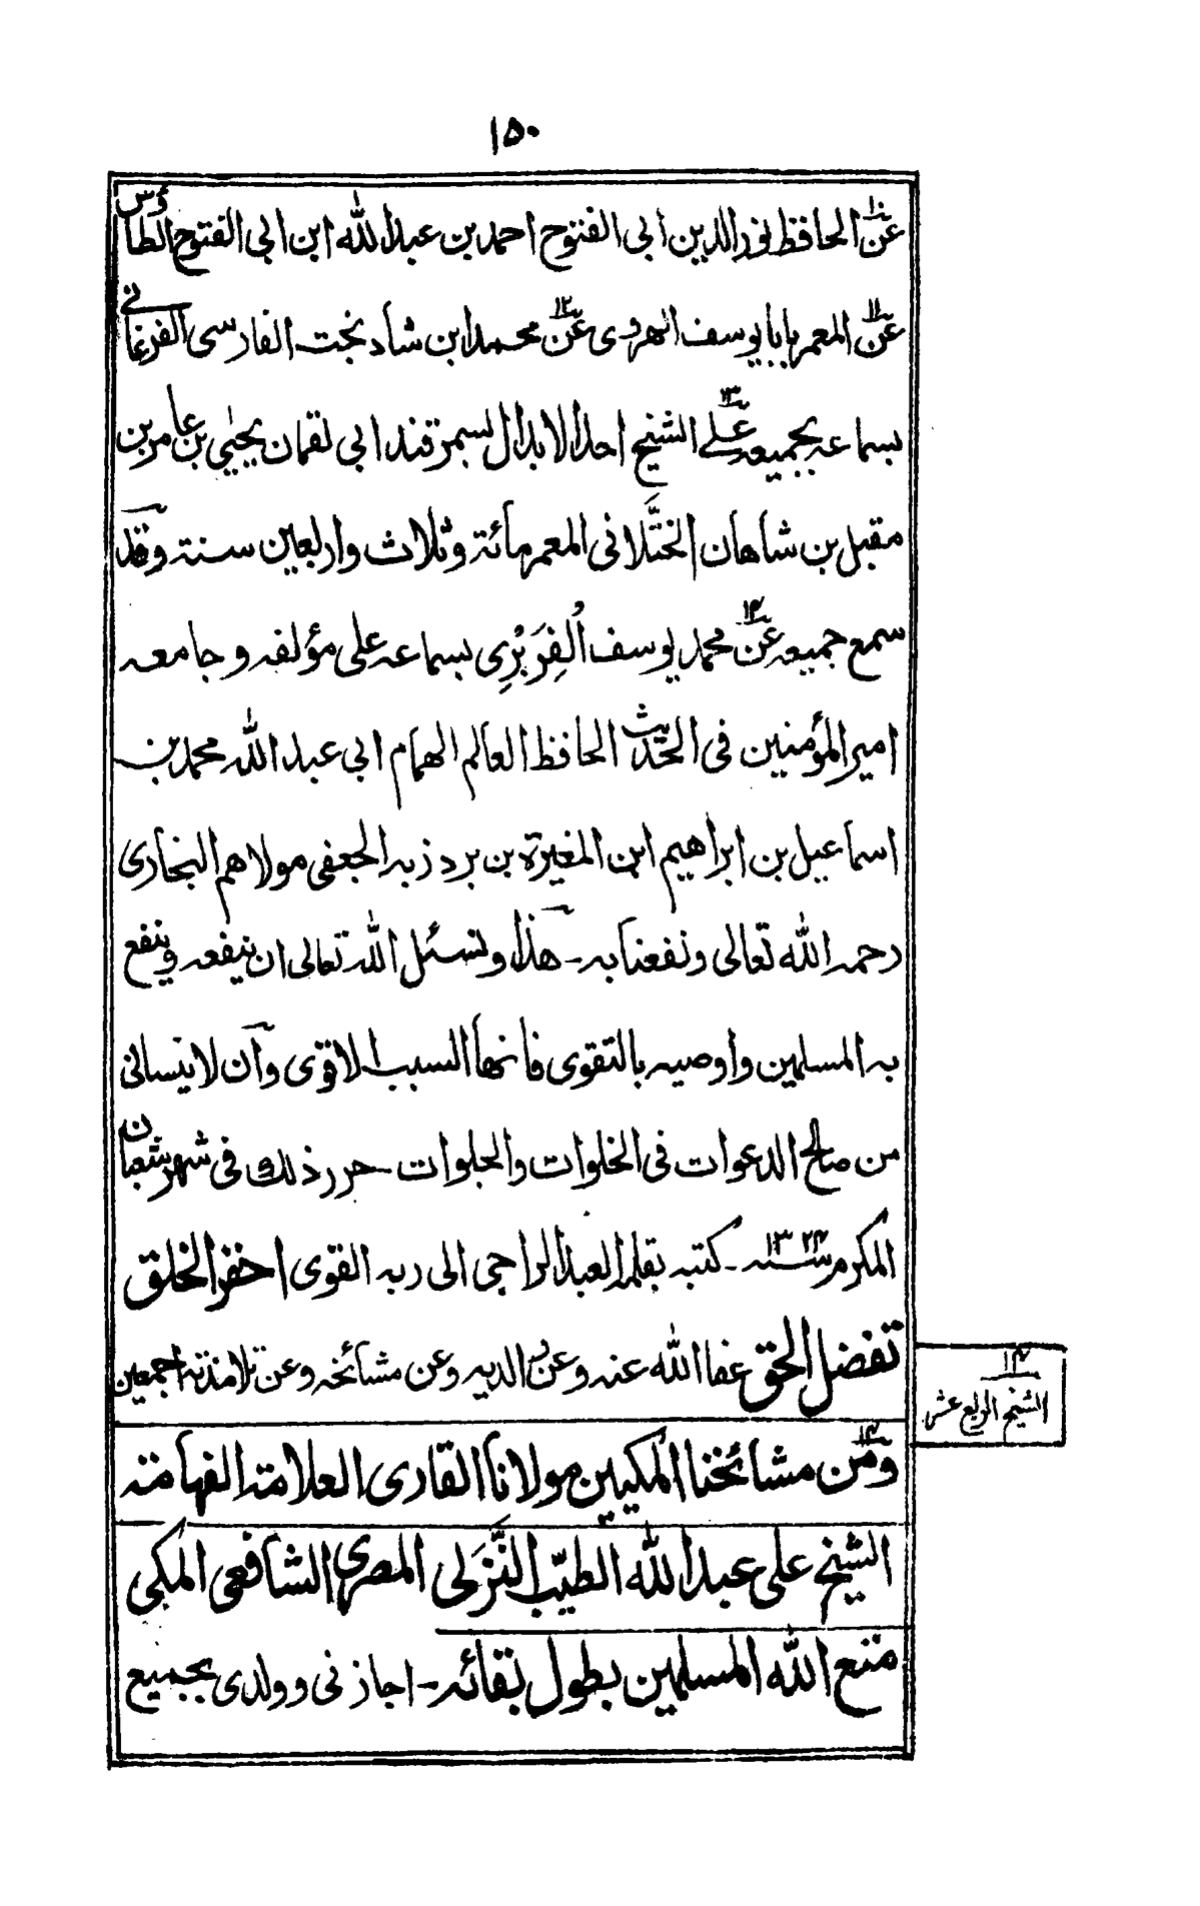 ١٥٠
عن١٠ الحافظ نور الدين ابى الفتوح احمد بن عبد الله ابن ابى الفتوح الطاؤس
عن١١ المعمر بابا يوسف الهروى عن١٢ محمد ابن شاد بخت الفارسى الفرغانے
بسماعه بجميعه علے١٣ الشيخ احد الابدال بسمرقند ابى لقمان يحيٰى بن عامر بن
مقبل بن شاهان الختَّلانى المعمر مائة وثلاث واربعين سنة وقد
سمع جميعه عن١٤ محمد يوسف الُفِرَبْرِى بسماعه على مؤلفه وجامعه
امير المؤمنين فى الحديث الحافظ العالم الهمام ابى عبد الله محمد بن
اسماعيل بن ابراهيم ابن المغيرة بن بردزبه الجعفى مولاهم البخارى
رحمه الله تعالى ونفعنا به ـ هذا ونسئل الله تعالى ان ينفعه وينفع
به المسلمين واوصيه بالتقوى فانها السبب الاقوى وآن لا ينسانى
من صالح الدعوات فى الخلوات والجلوات ـ حرر ذلك فى شهر شعبان
المكرم سنه ١٣٢٤ ـ كتبه بقلمه العبد الراجى الى ربه القوى احقر الخلق
تفضل الحق عفا الله عنه وعن والديه وعن مشائخه وعن تلامذته اجمعين
١٤ الشيخ الرابع عشر
ومن١٤ مشائخنا المكيين مولانا القارى العلامة الفهامة
الشيخ على عبد الله الطيّب النَّزَلى المصرى الشافعى المكى
متع الله المسلمين بطول بقائه ـ اجازنى وولدى بجميع